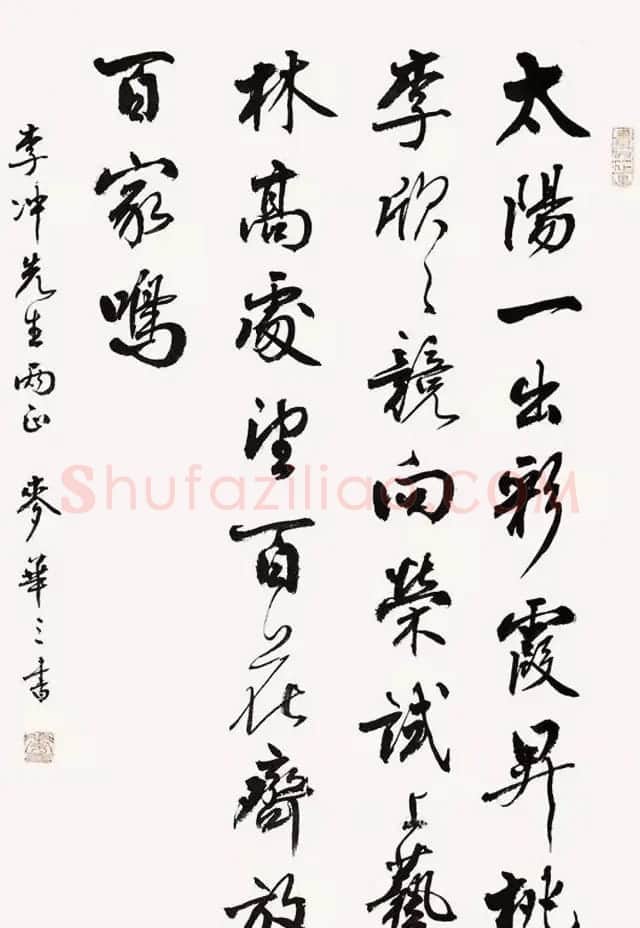 太陽一出彩霞昇桃
李欣〻競向榮試上藝
林高處望百花齊放
百家鳴
李冲先生兩正 麥華三書
Shufaziliao.com